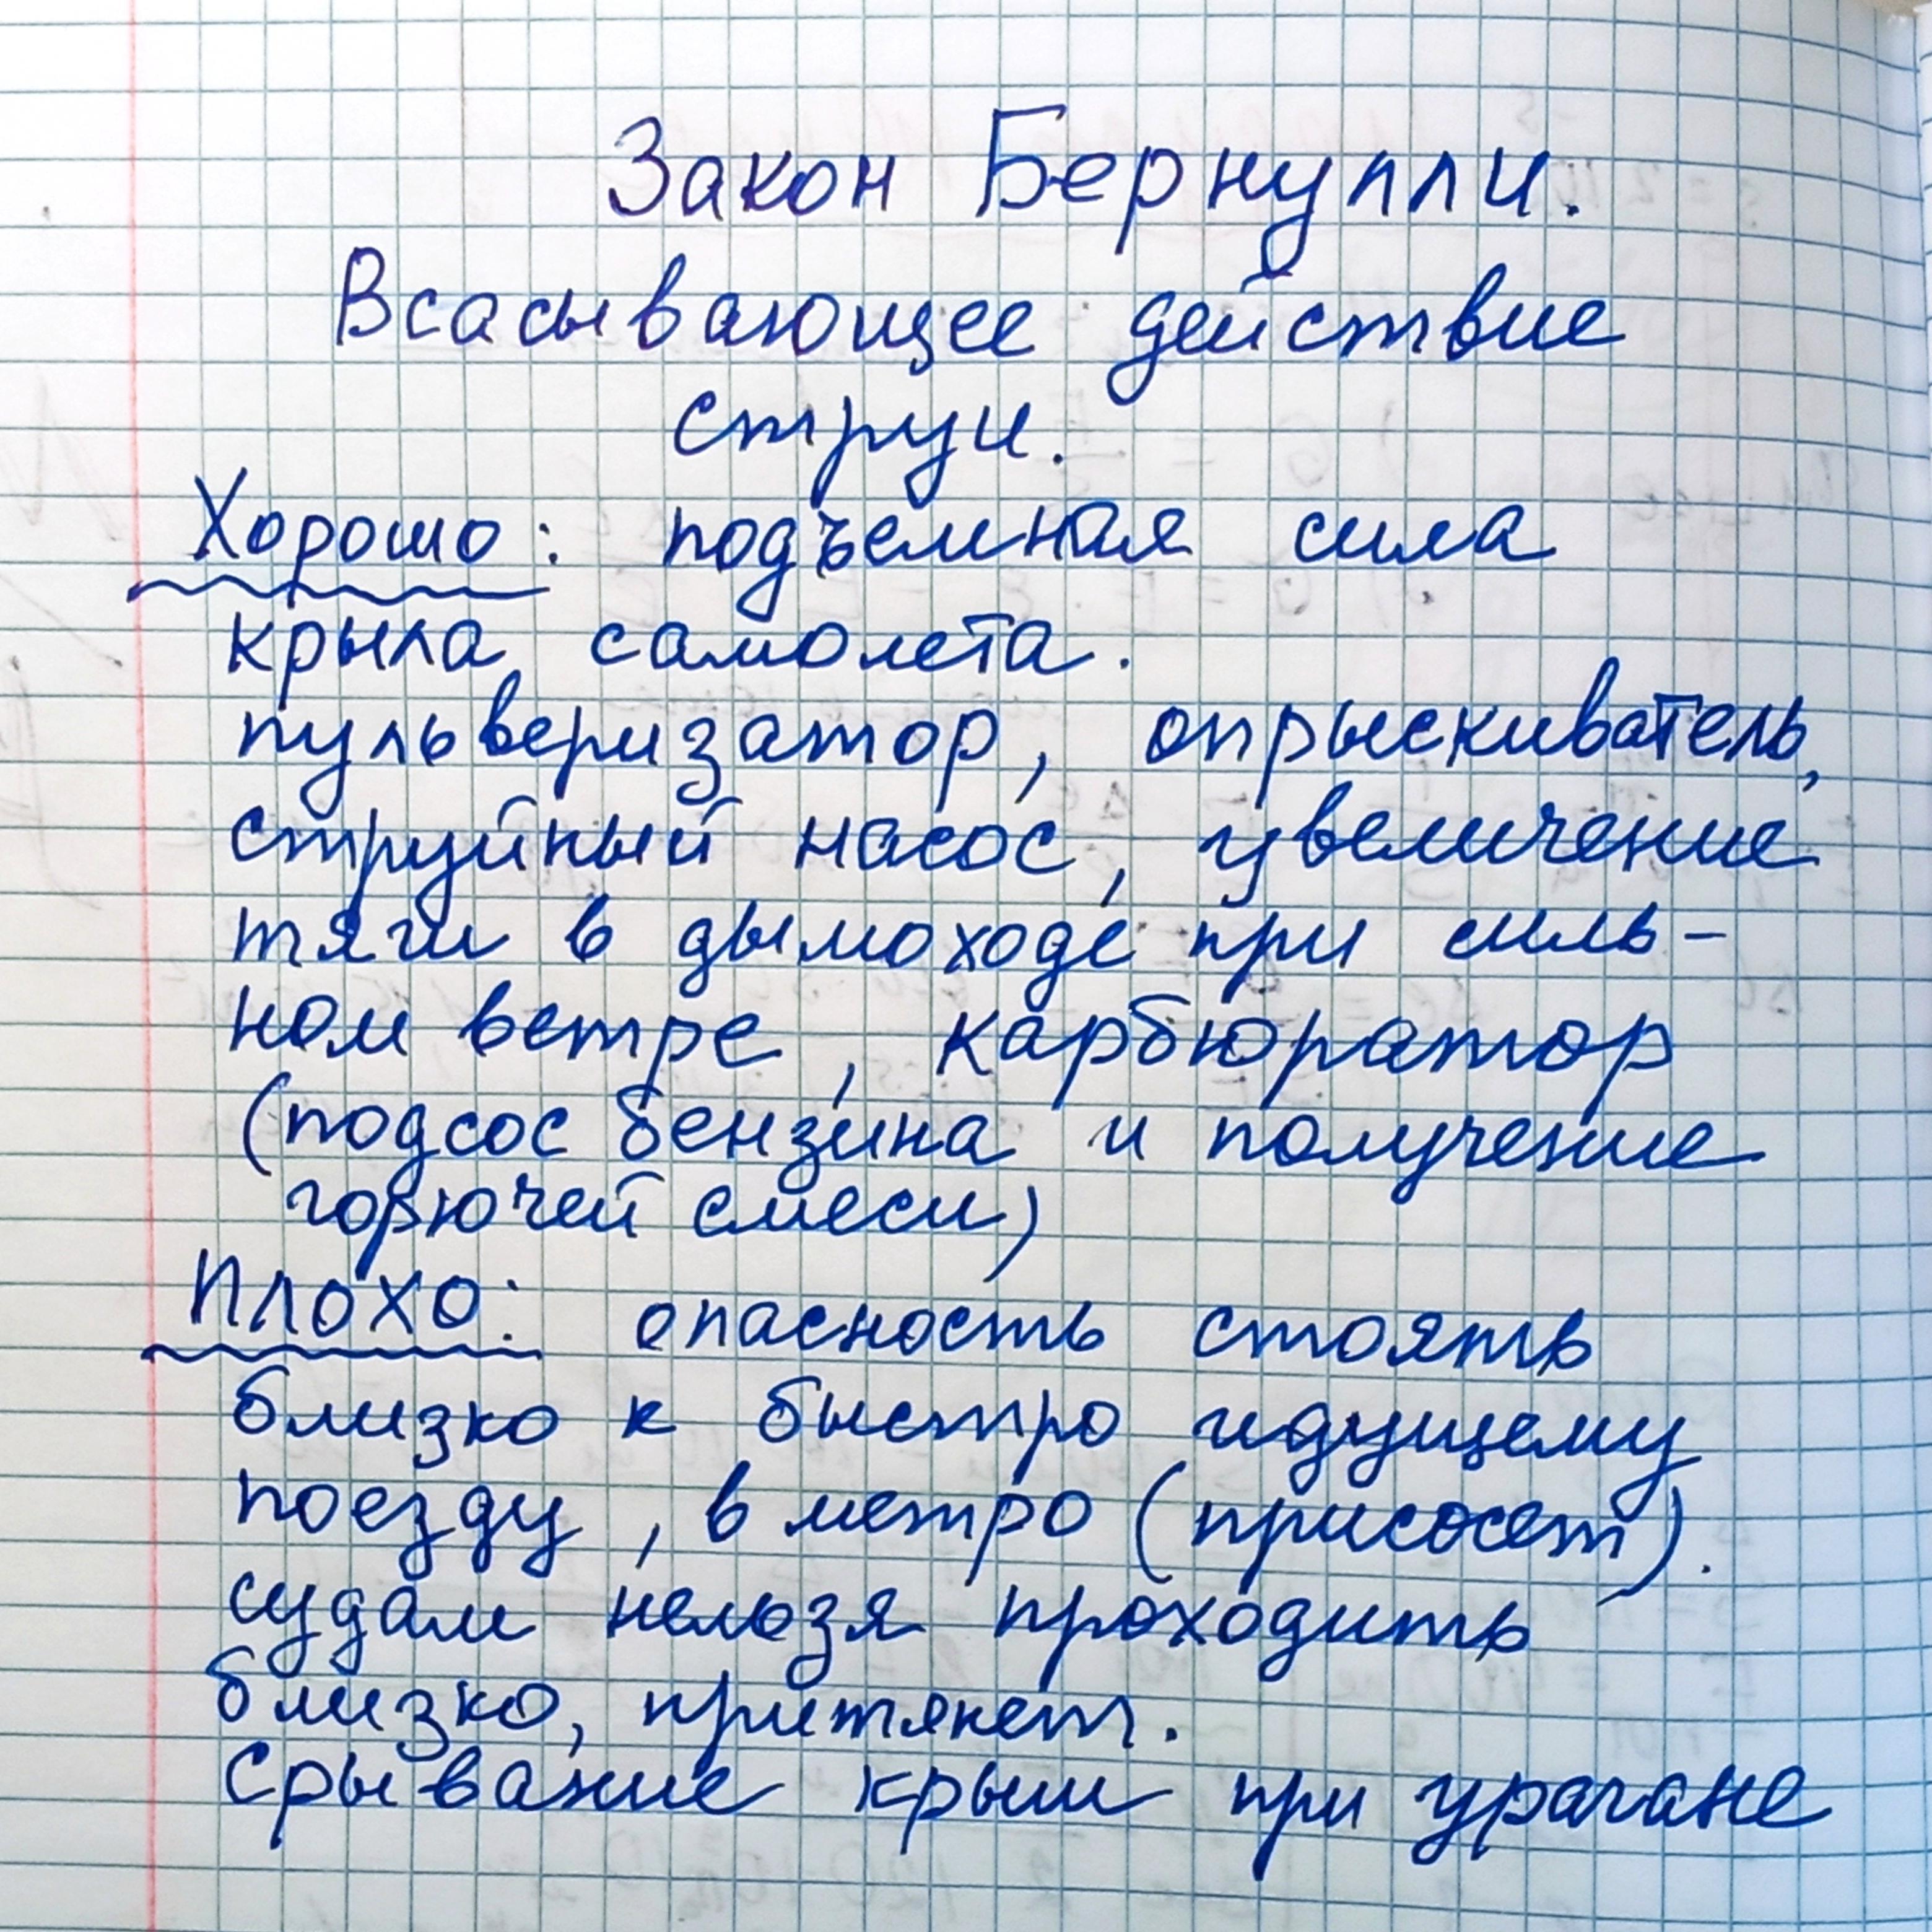 Закон Бернулли.
Всасывающее действие
струи.
Хорошо: подъемная сила
крыла самолета.
пульверизатор, опрыскиватель,
струйный насос, увеличение
тяги в дымоходе при силь-
ном ветре, карбюратор
(подсос бензина и получение
горючей смеси)
Плохо: опасность стоять
близко к быстро идущему
поезду, в метро (присосет).
судам нельзя проходить
близко, притянет.
Срывание крыш при урагане